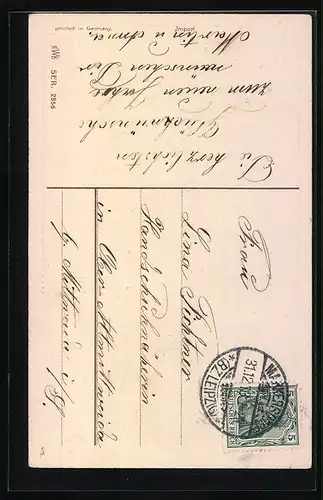 printed in Germany
Import
EWB
SER. 2856
Die herzlichsten
Glückwünsche
zum neuen Jahre
wünschen Dir
Martin u Anna.
Frau
Lina Fichtner
Handschuhnäherin
in Ober-Altmittweida
b. Mittweida i/S.
31.12
(BZ.LEIPZIG)
5